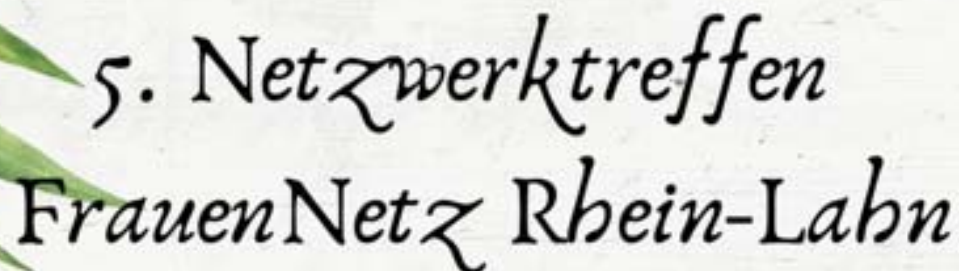 5. Netzwerktreffen
FrauenNetz Rhein-Lahn